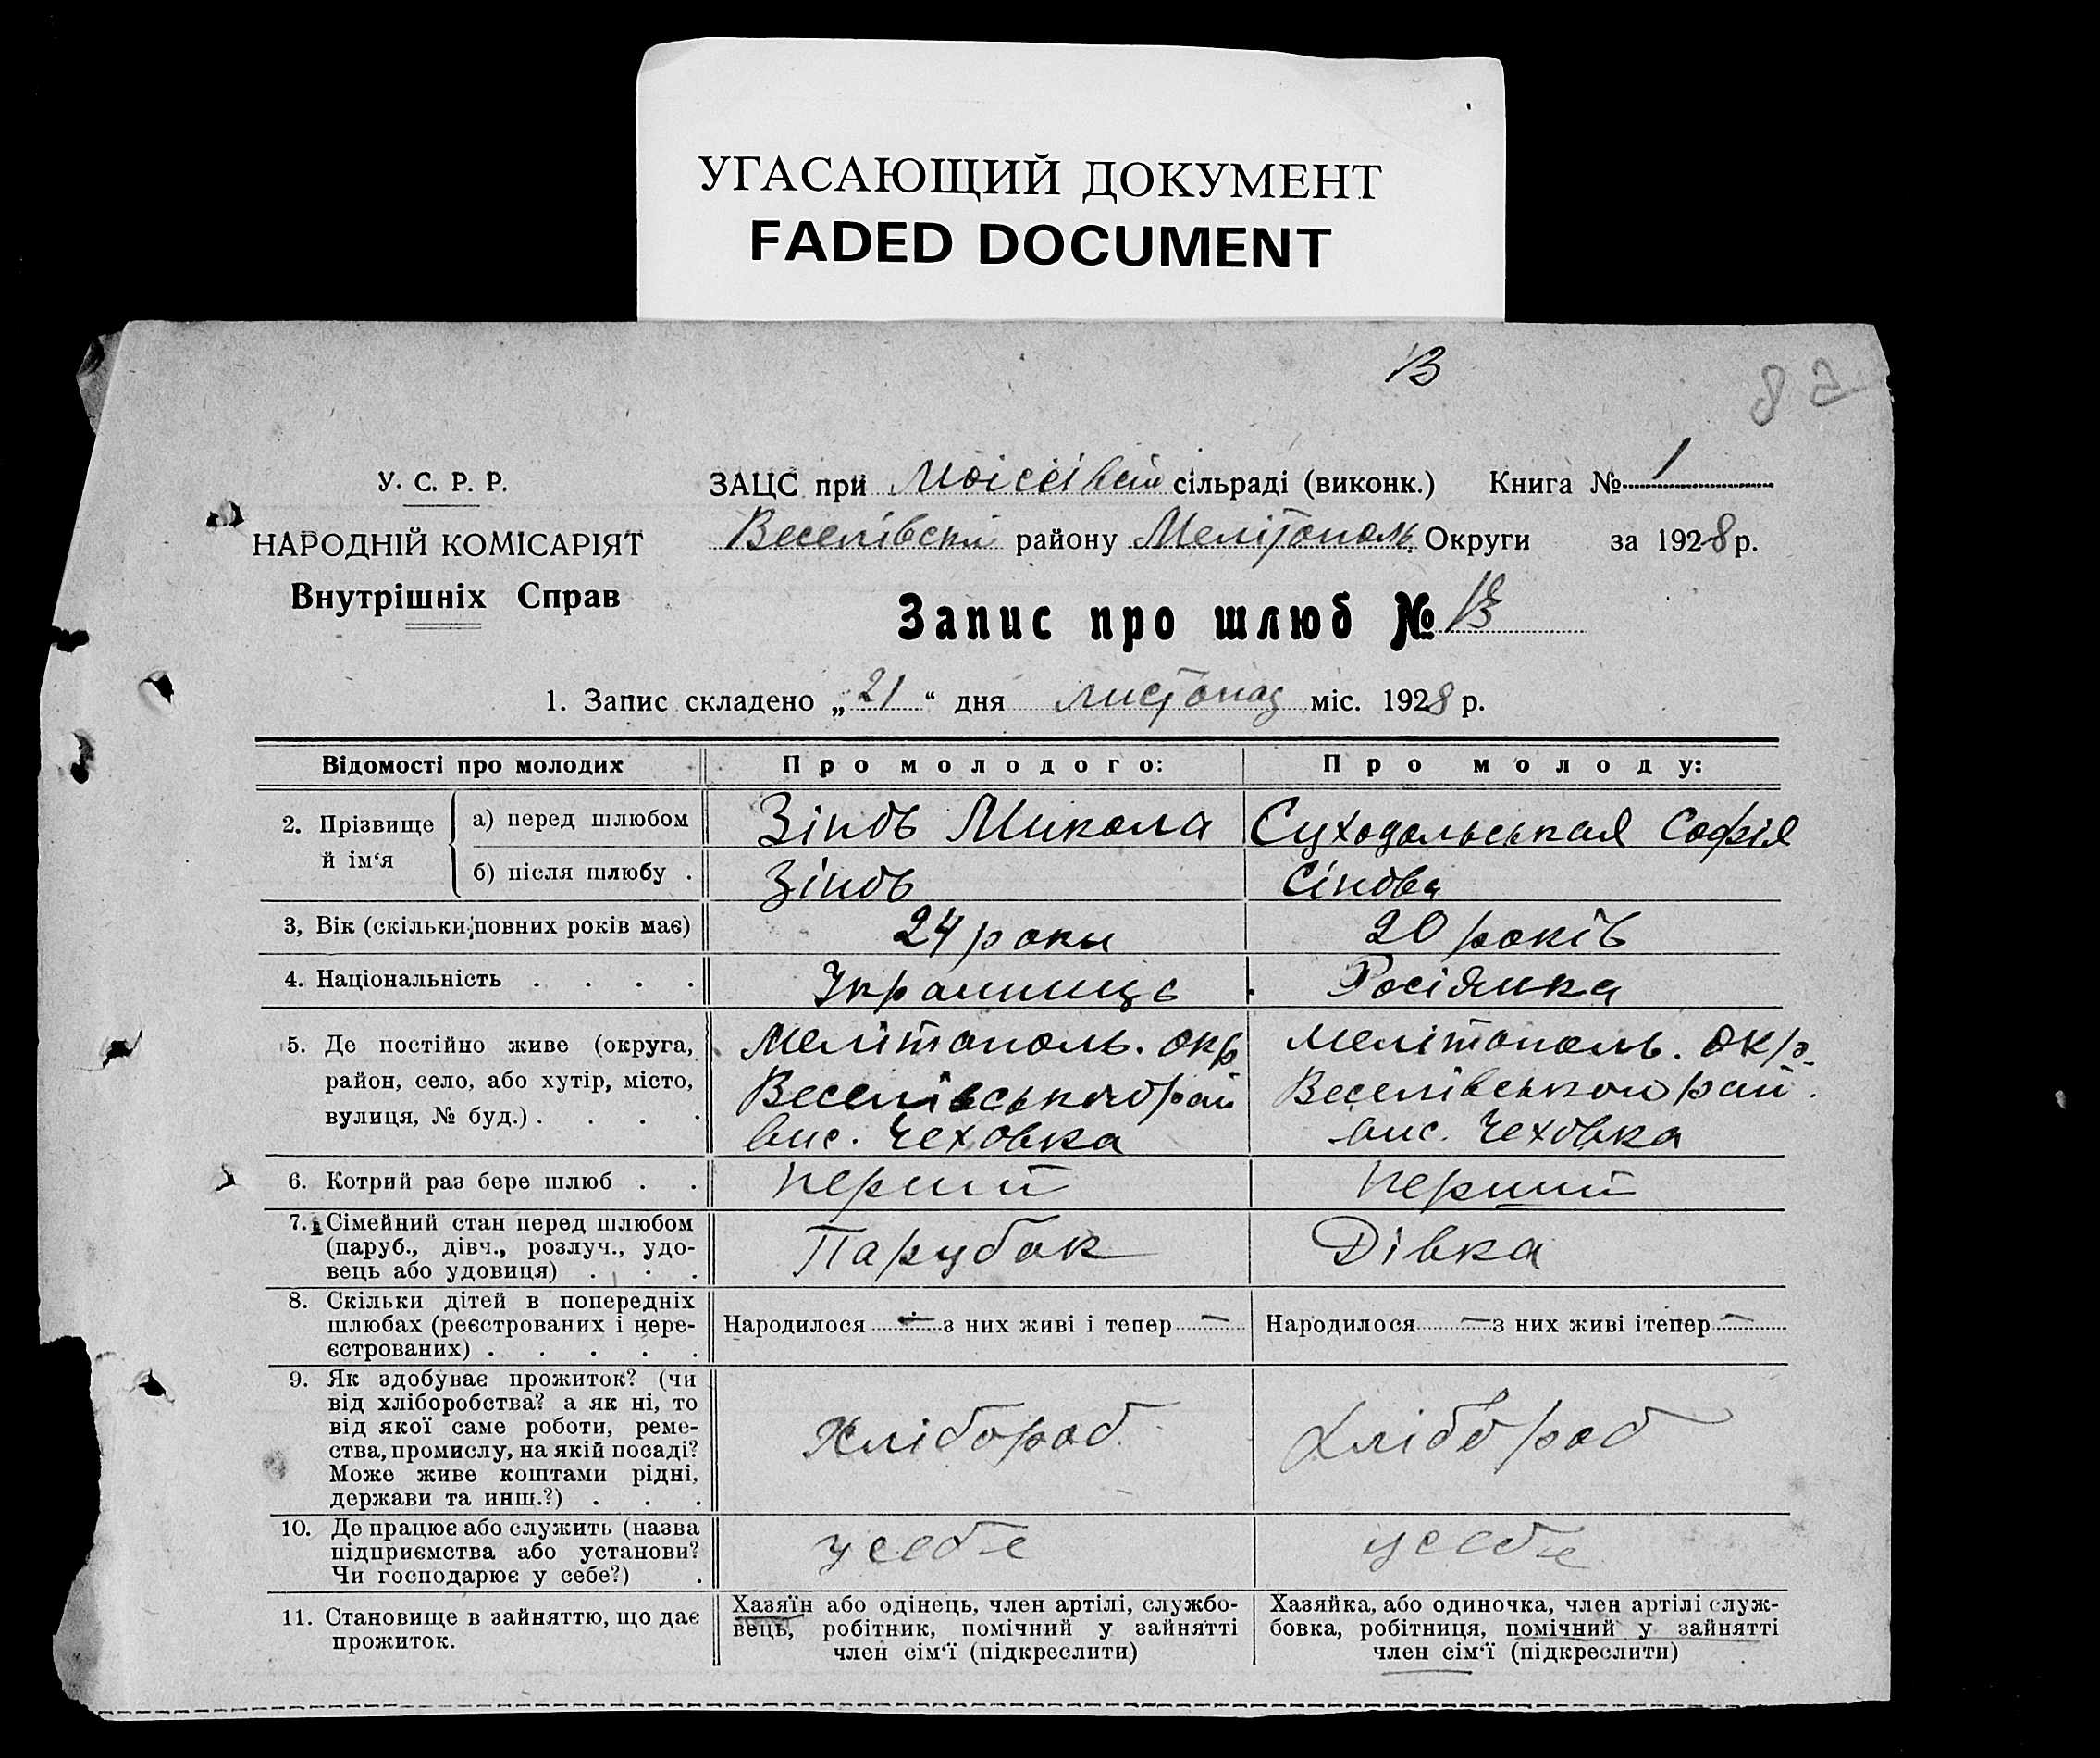 УГАСАЮЩИЙ ДОКУМЕНТ
FADED DOCUMENT
13
82
У. С. Р. Р.
НАРОДНІЙ КОМІСАРІЯТ
Внутрішніх Справ
ЗАЦС при Моісеївській сільраді (виконк.) Книга № 1
Веселівськ району Мелітополь. Округи за 1928 р.
Запис про шлюб № 13
1. Запис складено „21“ дня листопад міс. 1928 р.
Відомості про молодих
Про молодого:
Про молоду:
2. Прізвище й ім‘я
а) перед шлюбом
Зінов Микола
Суходольськая Софія
б) після шлюбу .
Зінов
Сінова
3, Вік (скільки повних років має)
24 роки
20 років
4. Національність . . . .
Українець
Росіянка
5. Де постійно живе (округа,
район, село, або хутір, місто,
вулиця, № буд.) . . . .
Мелітополь. окр
Веселівського рай
вис. Чеховка
Мелітополь. окр.
Веселівського рай.
вис. Чеховка
6. Котрий раз бере шлюб . .
перший
перший
7. Сімейний стан перед шлюбом
(паруб., дівч., розлуч., удо-
вець або удовиця) . . .
Парубок
Дівка
8. Скільки дітей в попередніх
шлюбах (реєстрованих і нере-
єстрованих) . . . . .
Народилося — з них живі і тепер —
Народилося — з них живі ітепер —
9. Як здобуває прожиток? (чи
від хліборобства? а як ні, то
від якої саме роботи, реме-
ства, промислу, на якій посаді?
Може живе коштами рідні,
держави та инш.?) . . .
Хлібороб
Хлібороб
10. Де працює або служить (назва
підприємства або установи?
Чи господарює у себе?) .
у себе
у себе
11. Становище в зайняттю, що дає
прожиток.
Хазяїн або одінець, член артілі, службо-
вець, робітник, помічний у зайнятті
член сім‘ї (підкреслити)
Хазяйка, або одиночка, член артілі служ-
бовка, робітниця, помічний у зайнятті
член сім‘ї (підкреслити)